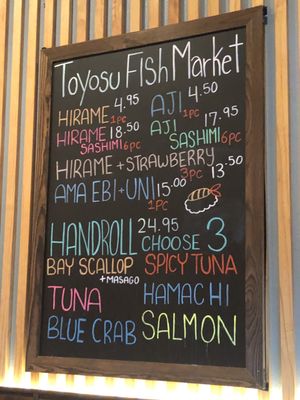 Toyosu Fish Market
HIRAME 4.95 1pc
AJI 4.50 1pc
HIRAME 18.50 SASHIMI 6pc
AJI 17.95 SASHIMI 6pc
HIRAME + STRAWBERRY 3pc 13.50
AMA EBI + UNI 15.00 1pc
HANDROLL 24.95 CHOOSE 3
BAY SCALLOP + MASAGO
SPICY TUNA
TUNA
HAMACHI
BLUE CRAB
SALMON